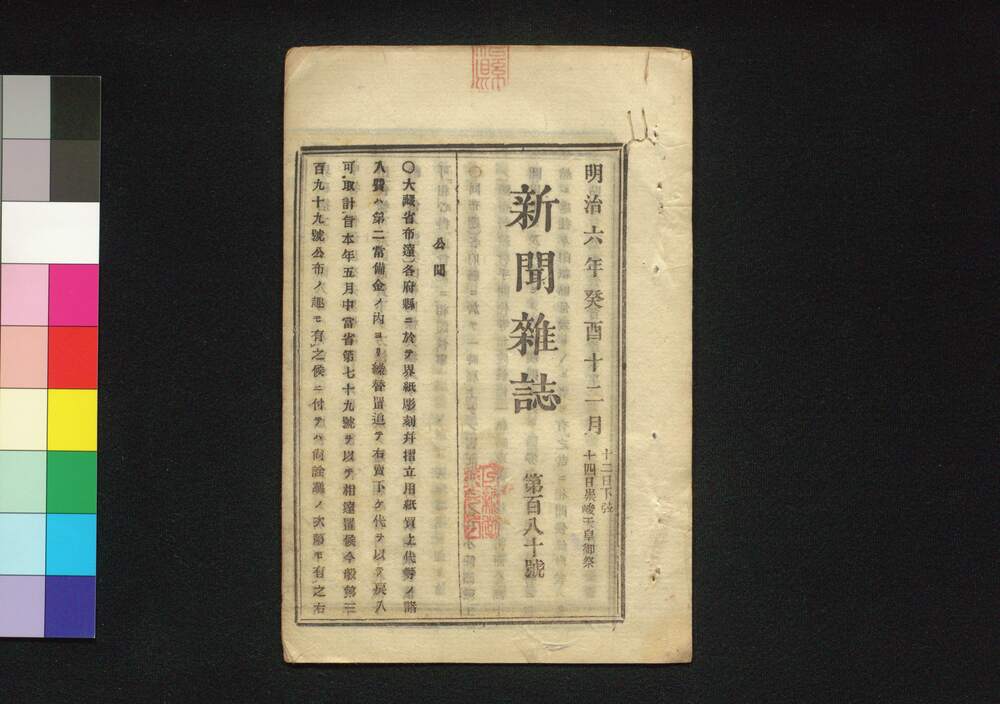 明治六年癸酉十二月
十二日下弦
十四日崇峻天皇御祭
新聞雜誌
第百八十號
公聞
〇大藏省布達各府縣ニ於テ界紙彫刻幷摺立用紙買上代等ノ諸
入費ハ第二常備金ノ内ヨリ繰替置追テ右賣下ケ代ヲ以テ戻入
可取計旨本年五月中當省第七十九號ヲ以テ相達置候今般第三
百九十九號公布ノ趣モ有之候ニ付テハ尚詮議ノ次第モ有之右